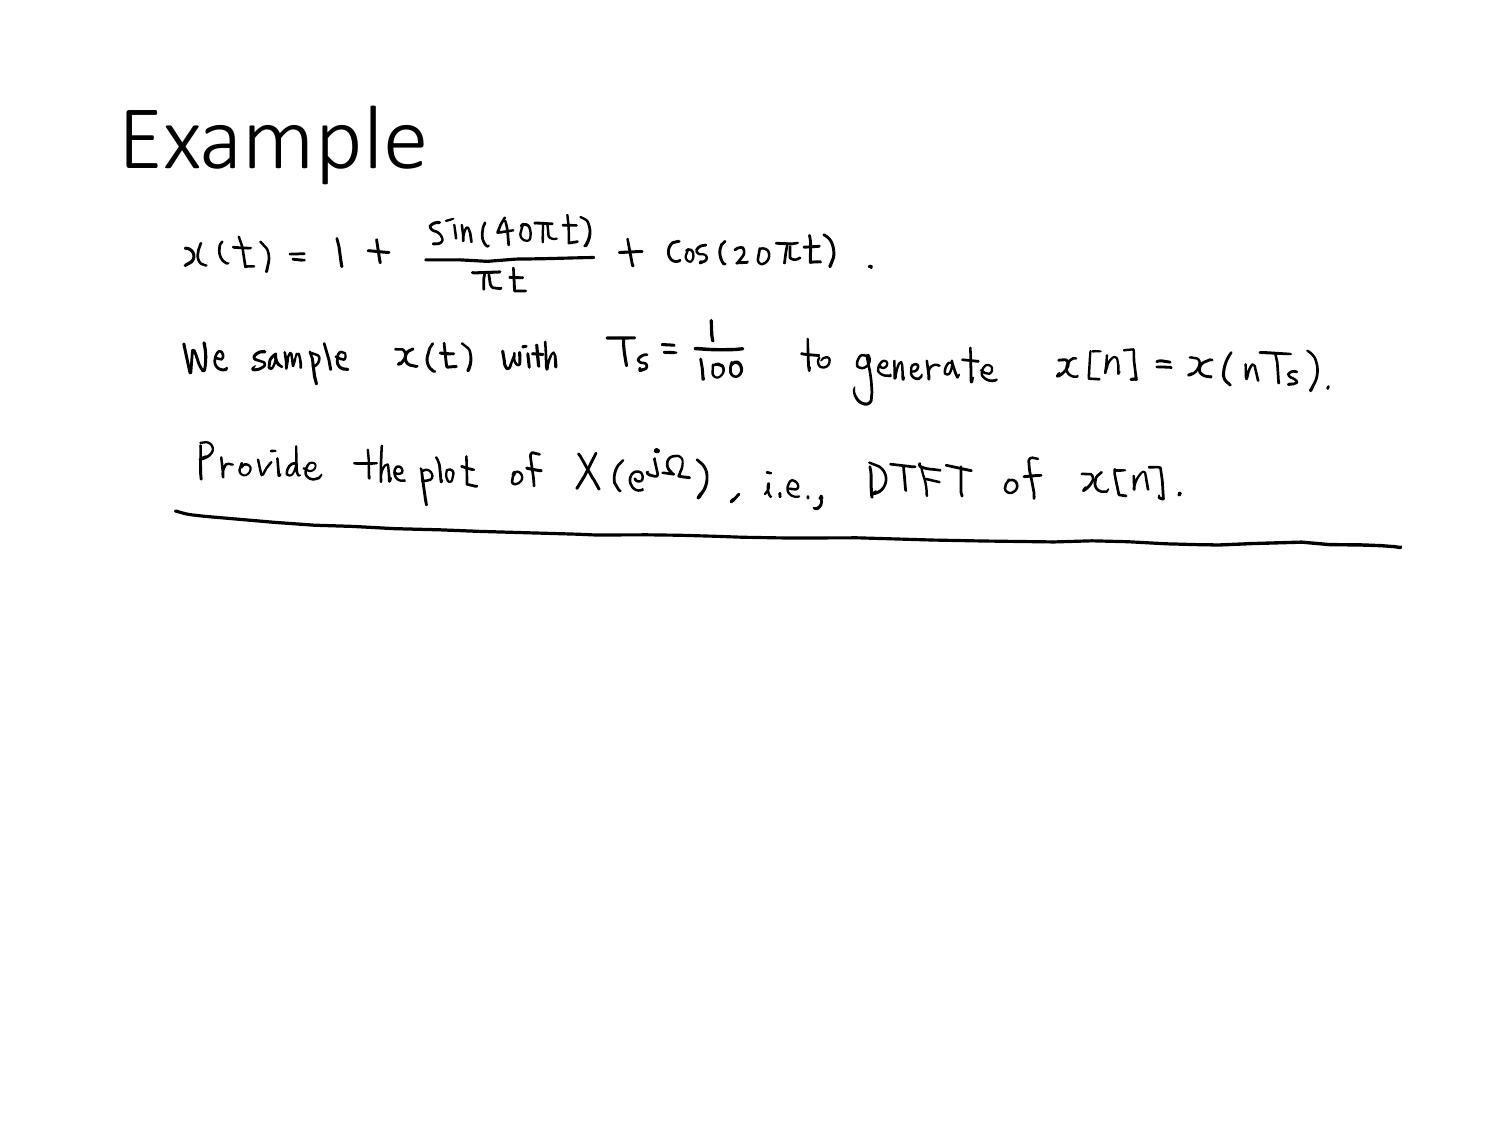 Example
x(t) = 1 + sin(40πt)/πt + cos(20πt) .
We sample x(t) with Ts = 1/100 to generate x[n] = x(nTs).
Provide the plot of X(e^jΩ), i.e., DTFT of x[n].